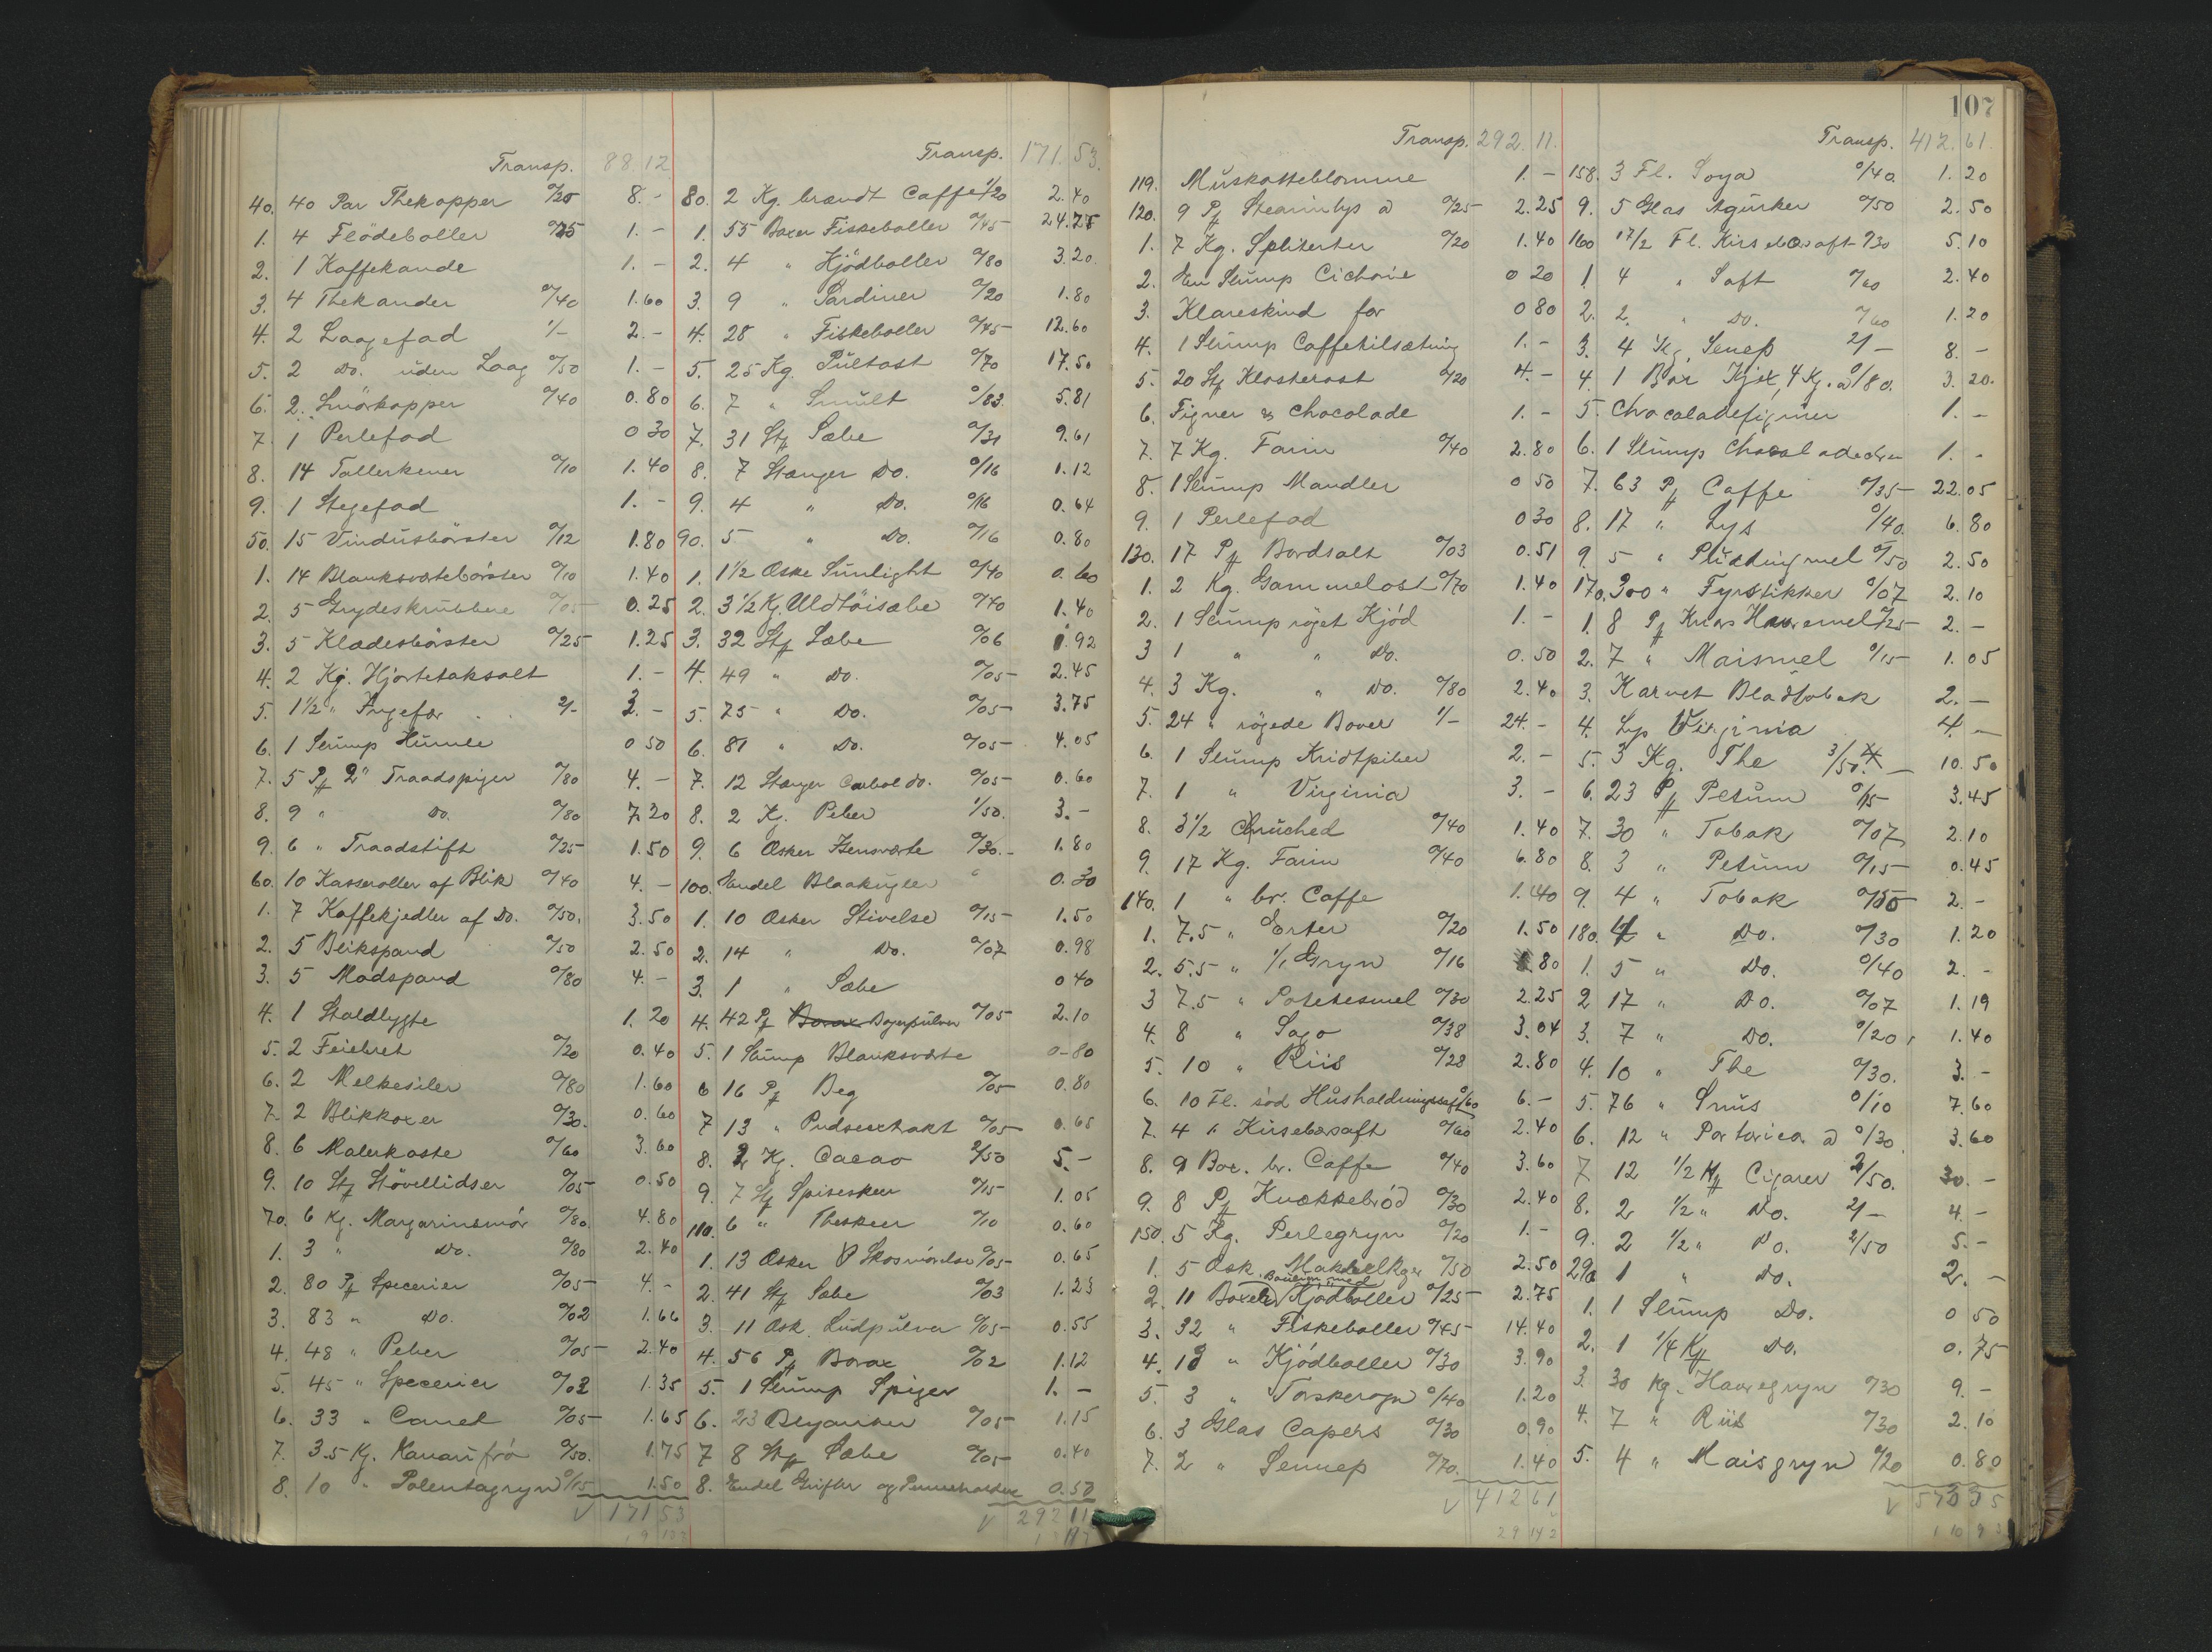 Transp. 88.12
40. 40 Par Thekopper %20 8.-
1. 4 Flödeboller %25 1.-
2. 1 Kaffekande 1.-
3. 4 Thekander %40 1.60
4. 2 Laagefad 1/- 2.-
5. 2 Do. uden Laag %50 1.-
6. 2 Smörkopper %40 0.80
7. 1 Perlefad 0 30
8. 14 Tallerkener %10 1.40
9. 1 Stegefad 1.-
50. 15 Vindusbörster %12 1.80
1. 14 Blanksværtebörster %10 1.40
2. 5 Grydeskrubbere %05 0.25
3. 5 Klædesbörster %25 1.25
4. 2 Kg. Hjortetaksalt 1.-
5. 1½ " Ingefær 2/- 3.-
6. 1 Slump Humle 0 50
7. 5 Pf 2" Traadspiger %80 4.-
8. 9 " Do. %80 7.20
9. 6 " Traadstift %25 1.50
60. 10 Kasseroller af Blik %40 4.-
1. 7 Kaffekjedler af Do. %50. 3.50
2. 5 Blikspand %50 2.50
3. 5 Madspand %80 4.-
4. 1 Staldlygte 1.20
5. 2 Feiebret %20 0.40
6. 2 Melkesiler %80 1.60
7. 2 Blikkoxer %30. 0.60
8. 6 Malerkoste %60 3.60
9. 10 Stf Stövellidser %05 0.50
70. 6 Kg. Margarinsmör %80. 4.80
1. 3 " Do. %80 2.40
2. 80 Pf Specerier %05 4.-
3. 83 " Do. %02 1.66
4. 48 " Peber %05 2.40
5. 45 " Specerier %03 1.35
6. 33 " Canel %05 1.65
7. 3.5 Kg. Kanarifrö %50. 1.75
8. 10 " Polentagryn %15 1.50
√ 171 53
Transp. 171.53.
80. 2 Kg. brændt Caffe 1/20 2.40
1. 55 Boxer Fiskeboller %45 24.75
2. 4 " Kjödboller %80 3.20
3. 9 " Sardiner %20 1.80
4. 28 " Fiskeboller %45 12.60
5. 25 Kg. Pultost %70 17.50
6. 7 " Smult %83. 5.81
7. 31 Stf Sæbe %31 9.61
8. 7 Stænger Do. %16 1.12
9. 4 " Do. %16 0.64
90. 5 " Do. %16 0.80
1. 1½ Æske Sunlight %40 0.60
2. 3½ Kg. Uldtöisæbe %40 1.40
3. 32 Stf Sæbe %06 1.92
4. 49 " Do. %05 2.45
5. 75 " Do. %05 3.75
6. 81 " Do. %05 4.05
7. 12 Stænger Carbol do. %05 0.60
8. 2 Kg. Peber 1/50. 3.-
9. 6 Æsker Stensværte %30.- 1.80
100. Endel Blaakugler 0.30
1. 10 Æsker Stivelse %15 1.50
2. 14 " Do. %07 0.98
3. 1 " Sæbe 0 40
4. 42 Pf Borax Bagepulver %05 2.10
5. 1 Slump Blanksværte 0-80
6 16 Pf Beg %05 0.80
7 13 " Pudseextrakt %05 0.65
8. 2 Kg. Cacao 2/50 5.-
9. 7 Stf Spiseskeer %15 1.05
110. 6 " Theskeer %10 0.60
1. 13 Æsker Skosmörelse %05 0.65
2. 41 Stf Sæbe %03 1.23
3. 11 Æsk. Ludpulver %05 0.55
4. 56 Pf Borax %02 1.12
5. 1 Slump Spiger 1.-
6. 23 Blyanter %05 1.15
7 8 Stf Sæbe %05 0.40
8. Endel Grifler og Penneskafter 0.50
√ 292 11
107
Transp. 292.11.
119. Muskatteblomme 1.-
120. 9 Pf Stearinlys a %25 2.25
1. 7 Kg. Spliterter %20 1.40
2. En Slump Cichorie 0 20
3. Klareskind for 0 80
4. 1 Slump Caffetilsætning 1.-
5. 20 Stf Klosterost %20 4.-
6. Figner & Chocolade 1.-
7. 7 Kg. Farin %40 2.80
8. 1 Slump Mandler 0 50
9. 1 Perlefad 0 30
130. 17 Pf Bordsalt %03 0.51
1. 2 Kg. Gammelost %70 1.40
2. 1 Slump röget Kjöd 1.-
3 1 " " Do. 0.50
4. 3 Kg. " Do. %80 2.40
5. 24 " rögede Bover 1/- 24.-
6. 1 Slump Kridtpiber 2.-
7. 1 " Virginia 3.-
8. 3½ Cruched %40 1.40
9. 17 Kg. Farin %40 6.80
140. 1 " br. Caffe 1.40
1. 7.5 " Erter %20 1.50
2. 5.5 " 1/1 Gryn %16 .80
3 7.5 " Potetesmel %30 2.25
4. 8 " Sago %38 3.04
5. 10 " Riis %28 2.80
6. 10 Fl. söd Husholdningssaft %60 6.-
7. 4 " Kirsebærsaft %60 2.40
8. 9 Box. br. Caffe %40 3.60
9. 8 Pf Knækkebröd %30 2.40
150. 5 Kg. Perlegryn %20 1.-
1. 5 Æsk. %50 2.50
2. 11 Boxer Kjödboller %25 2.75
3. 32 " Fiskeboller %45 14.40
4. 13 " Kjödboller %30 3.90
5. 3 " Torskerogn %40 1.20
6. 3 Glas Capers %30 0.90
7. 2 " Sennep %70. 1.40
√ 412 61
Transp. 412.61.
158. 3 Fl. Soya %40. 1.20
9. 5 Glas Agurker %50 2.50
160 17/2 Fl. Kirsebærsaft %30 5.10
1. 4 " Saft %60 2.40
2. 2. " Do. %60 1.20
3. 4 Kg. Senep 2/- 8.-
4. 1 Box Kjex, 4 Kg. a %80. 3.20.
5. Chocoladefigurer 1.-
6. 1 Slump 1.-
7. 63 Pf Caffe %35 22.05
8. 17 " Lys %40. 6.80
9. 5 " Puddingmel %50 2.50
170. 300 " Fyrstikker %07 2.10
1. 8 Pf Knors Havremel %25 2.-
2. 7 " Maismel %15 1.05
3. Karvet Bladtobak 2.-
4. Lys Virginia 4.-
5. 3 Kg. The 3/50. 10.50
6. 23 Pf Petum %15 3.45
7. 30 " Tobak %07 2.10
8. 3 " Petum %15 0.45
9. 4 " Tobak %50 2.-
180. 4 " Do. %30 1.20
1. 5 " Do. %40 2.-
2 17 " Do. %07 1.19
3. 7 " Do. %20 1.40
4. 10 " The %30. 3.-
5. 76 " Snus %10 7.60
6. 12 " Portorico a %30 3.60
7. 12 1/2 Kf Cigarer 2/50. 30.-
8. 2 1/2 " Do. 2/- 4.-
9. 2 1/2 " Do. 2/50 5.-
290 1 " Do. 2.-
1. 1 Slump Do. 0 50
2. 1 1/4 Kf Do. 0.75
3. 30 Kg. Havregryn %30 9.-
4. 7 " Riis %30 2.10
5. 4 " Maisgryn %20 0.80